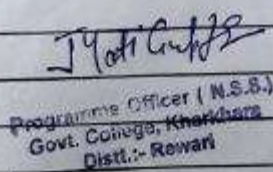 Jyoti Gupta
Programme Officer ( N.S.S.)
Govt. College, Kharkhara
Distt.:- Rewari